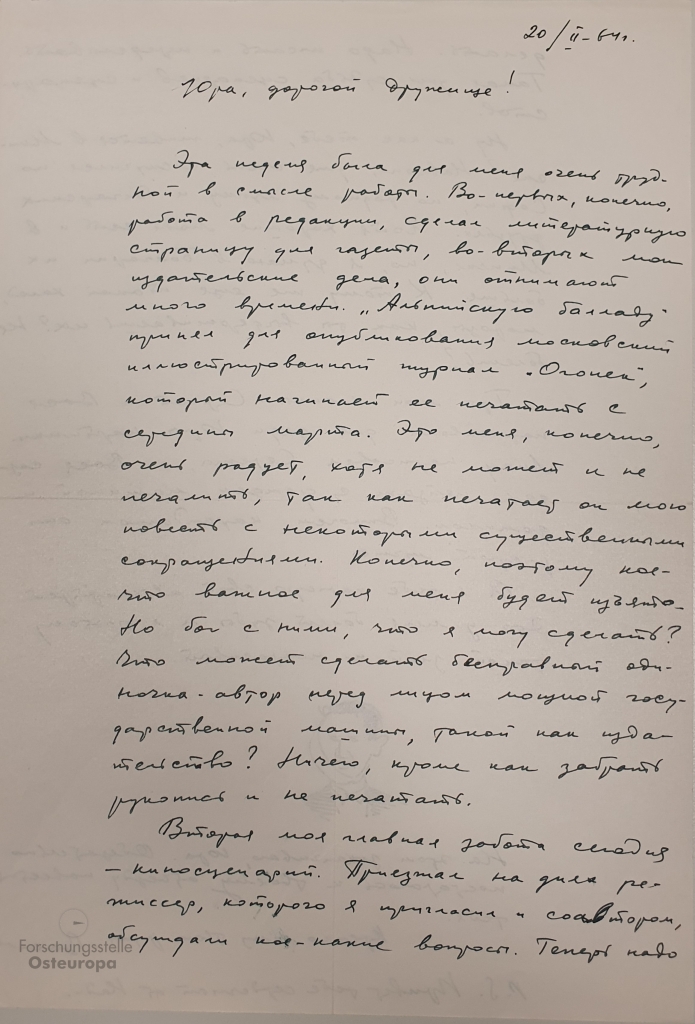 20/II-64г.
Юра, дорогой дружище!
Эта неделя была для меня очень труд-
ной в смысле работы. Во-первых, конечно,
работа в редакции, сделал литературную
страницу для газеты, во-вторых мои
издательские дела, они отнимают
много времени. „Альпийскую балладу"
принял для опубликования московский
иллюстрированный журнал „Огонек",
который начинает ее печатать с
середины марта. Это меня, конечно,
очень радует, хотя не может и не
печалить, так как печатает он мою
повесть с некоторыми существенными
сокращениями. Конечно, поэтому кое-
что важное для меня будет изъято.
Но бог с ними, что я могу сделать?
Что может сделать бесправный оди-
ночка-автор перед лицом мощной госу-
дарственной машины, такой как изда-
тельство? Ничего, кроме как забрать
рукопись и не печатать.
Вторая моя главная забота сегодня
– киносценарий. Приезжал на днях ре-
жиссер, которого я пригласил и соавтором,
обсуждали кое-какие вопросы. Теперь надо
Forschungsstelle
Osteuropa